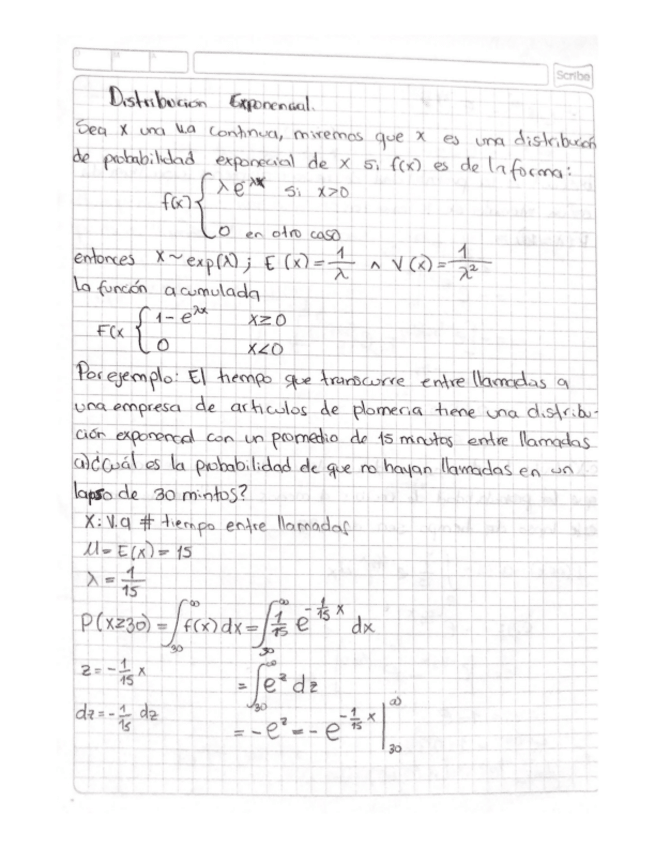 Scribe
Distribucion Exponencial.
Sea X una va continua, miremos que X es una distribución
de probabilidad exponecial de X si f(x) es de la forma:
f(x) { λe^λx si x>0
0 en otro caso
entonces X~exp(λ); E(x)=1/λ ∧ V(x)=1/λ²
la función acumulada
F(x { 1-e^λx x≥0
0 x<0
Por ejemplo: El tiempo que transcurre entre llamadas a
una empresa de articulos de plomeria tiene una distribu-
ción exponencal con un promedio de 15 minutos entre llamadas
a) ¿Cuál es la probabilidad de que no hayan llamadas en un
lapso de 30 mintos?
X: V.a # tiempo entre llamadas
μ= E(x)= 15
λ = 1/15
P(x≥30) = ∫₃₀^∞ f(x) dx = ∫₃₀^∞ 1/15 e^(-1/15 x) dx
z = -1/15 x = ∫₃₀^∞ e^z dz
dz = -1/15 dz = -e^z = -e^(-1/15 x) |₃₀^∞